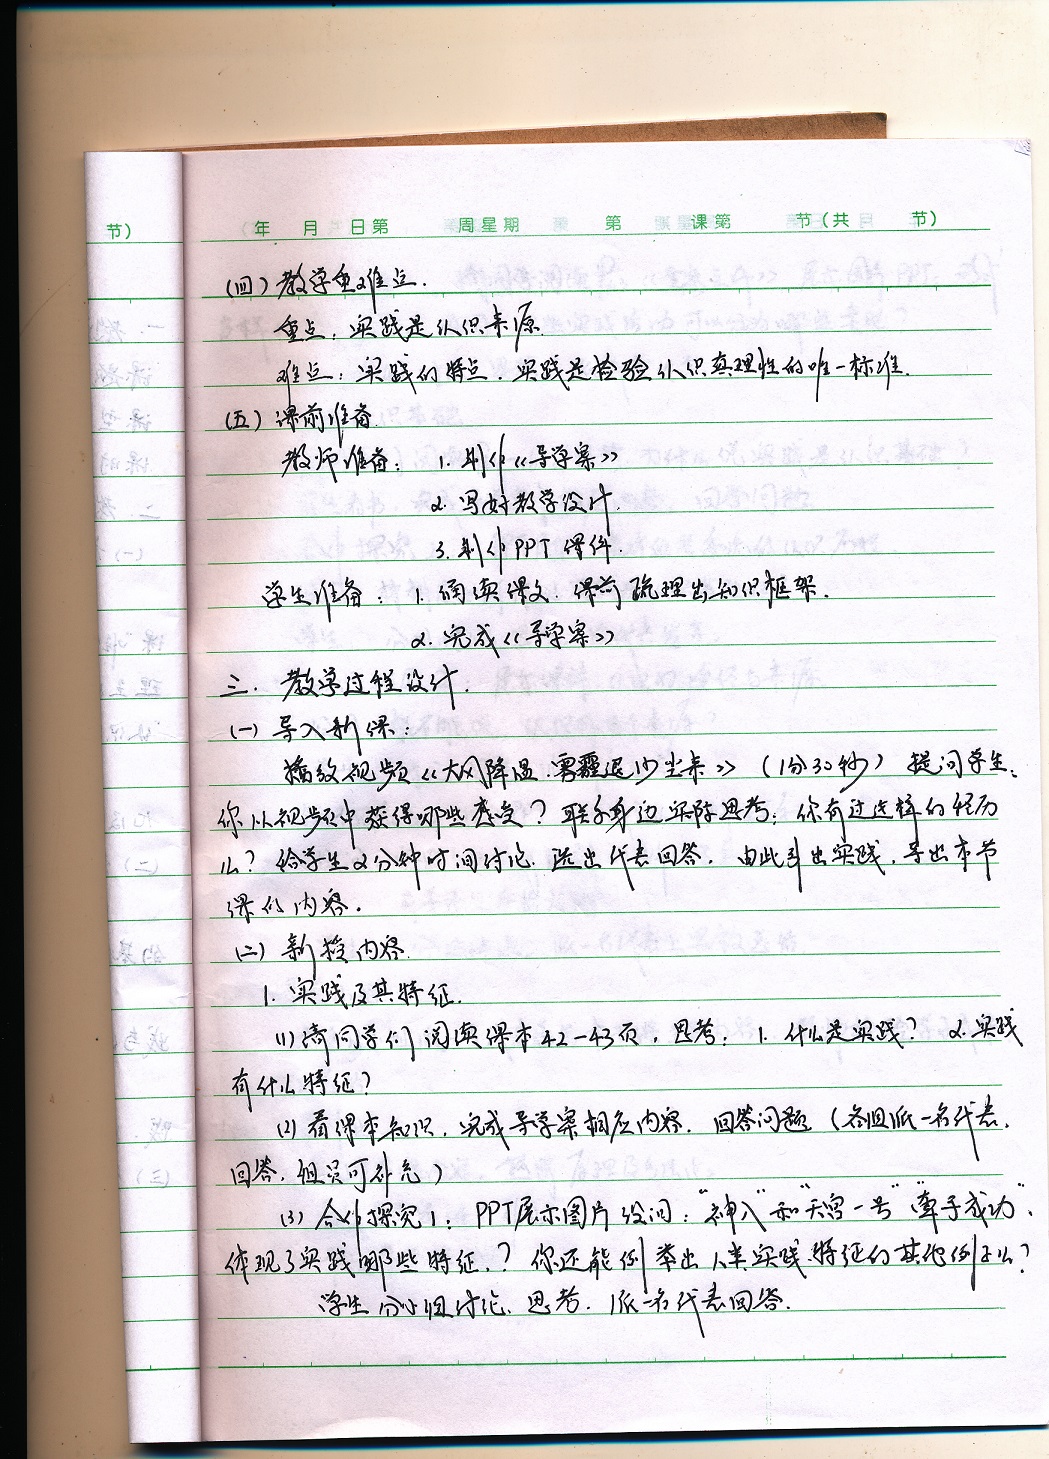 节）
年 月 日第 周星期 第 课第 节（共 节）
（四）教学重难点.
重点：实践是认识来源
难点：实践的特点. 实践是检验认识真理性的唯一标准.
（五）课前准备
教师准备： 1. 制作《导学案》
2. 写好教学设计.
3. 制作PPT课件.
学生准备： 1. 阅读课文. 课前梳理出知识框架.
2. 完成《导学案》
三. 教学过程设计.
（一）导入新课：
播放视频《大风降温 雾霾退沙尘来》（1分30秒）提问学生：
你从视频中获得哪些感受？联系身边实际思考：你有过这样的经历
么？给学生2分钟时间讨论. 选出代表回答. 由此引出实践. 导出本节
课的内容.
（二）新授内容.
1. 实践及其特征.
（1）请同学们阅读课本42-43页. 思考： 1. 什么是实践？ 2. 实践
有什么特征？
（2）看课本知识. 完成导学案相应内容. 回答问题（各组派一名代表.
回答. 组员可补充）
（3）合作探究1： PPT展示图片设问：“神八”和“天宫一号”“牵手成功”.
体现了实践哪些特征.？你还能例举出人类实践特征的其他例子么？
学生分小组讨论. 思考. 派一名代表回答.